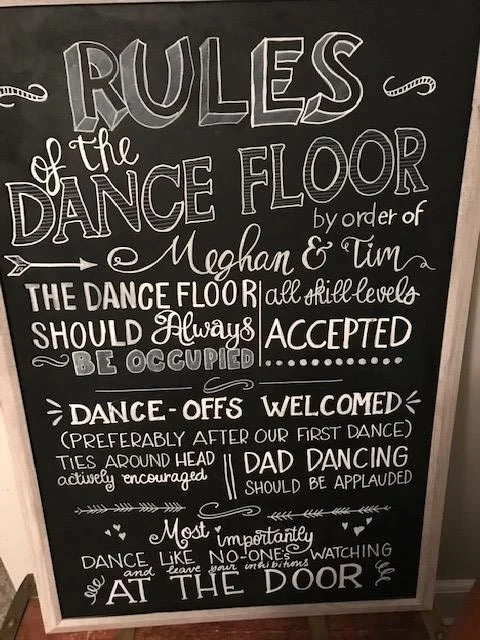 RULES
of the
DANCE FLOOR
by order of
Meghan & Tim
THE DANCE FLOOR
SHOULD Always
BE OCCUPIED
all skill-levels
ACCEPTED
DANCE-OFFS WELCOMED
(PREFERABLY AFTER OUR FIRST DANCE)
TIES AROUND HEAD
actively encouraged
DAD DANCING
SHOULD BE APPLAUDED
Most importantly
DANCE LIKE NO-ONES WATCHING
and leave your inhibitions
AT THE DOOR